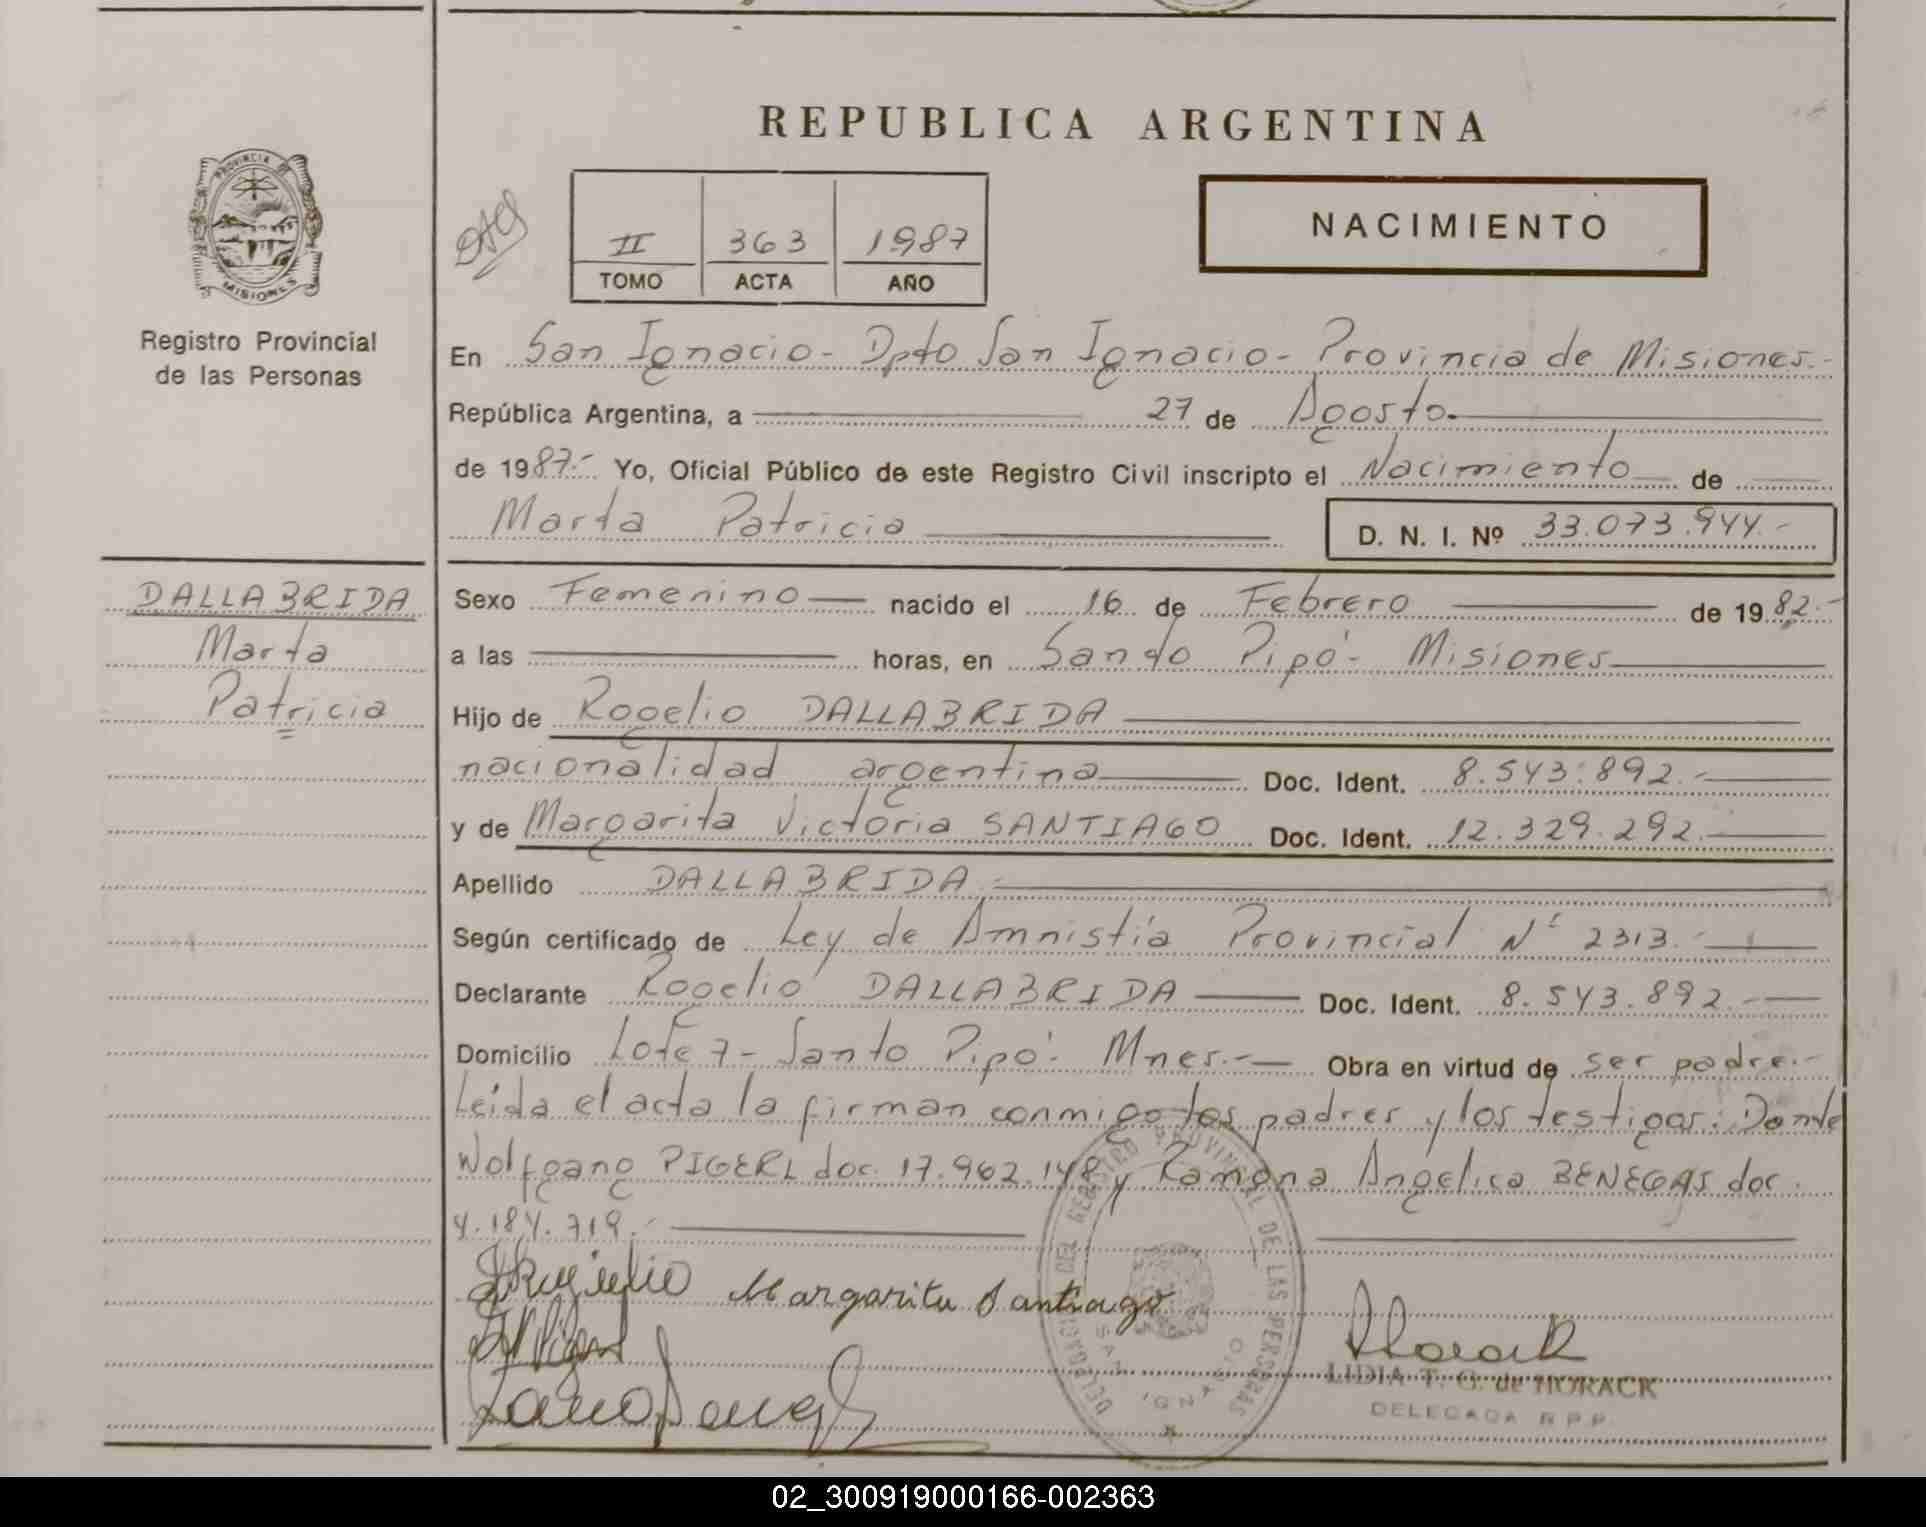 REPUBLICA ARGENTINA
PROVINCIA DE
MISIONES
Registro Provincial
de las Personas
II 363 1987
TOMO ACTA AÑO
NACIMIENTO
En San Ignacio- Dpto San Ignacio- Provincia de Misiones.-
República Argentina, a 27 de Agosto.
de 1987.- Yo, Oficial Público de este Registro Civil inscripto el Nacimiento de
Marta Patricia D. N. I. Nº 33.073.944.-
DALLABRIDA
Marta
Patricia
Sexo Femenino nacido el 16 de Febrero de 1982.-
a las horas, en Santo Pipó- Misiones
Hijo de Rogelio DALLABRIDA
nacionalidad argentina Doc. Ident. 8.543.892.-
y de Margarita Victoria SANTIAGO Doc. Ident. 12.329.292.-
Apellido DALLABRIDA.-
Según certificado de Ley de Amnistía Provincial Nº 2313.-
Declarante Rogelio DALLABRIDA Doc. Ident. 8.543.892.-
Domicilio Lote 7- Santo Pipó- Mnes.- Obra en virtud de ser padre.-
Leida el acta la firman conmigo los padres y los testigos: Dante
Wolfgang PIGERL doc. 17.962.148 y Ramona Angelica BENEGAS doc.
4.184.719.-
Margarita Santiago
DELEGACION DEL REGISTRO PROVINCIAL DE LAS PERSONAS
SAN IGNACIO
Horack
LIDIA T. G. de HORACK
DELEGADA R.P.P.
02_300919000166-002363